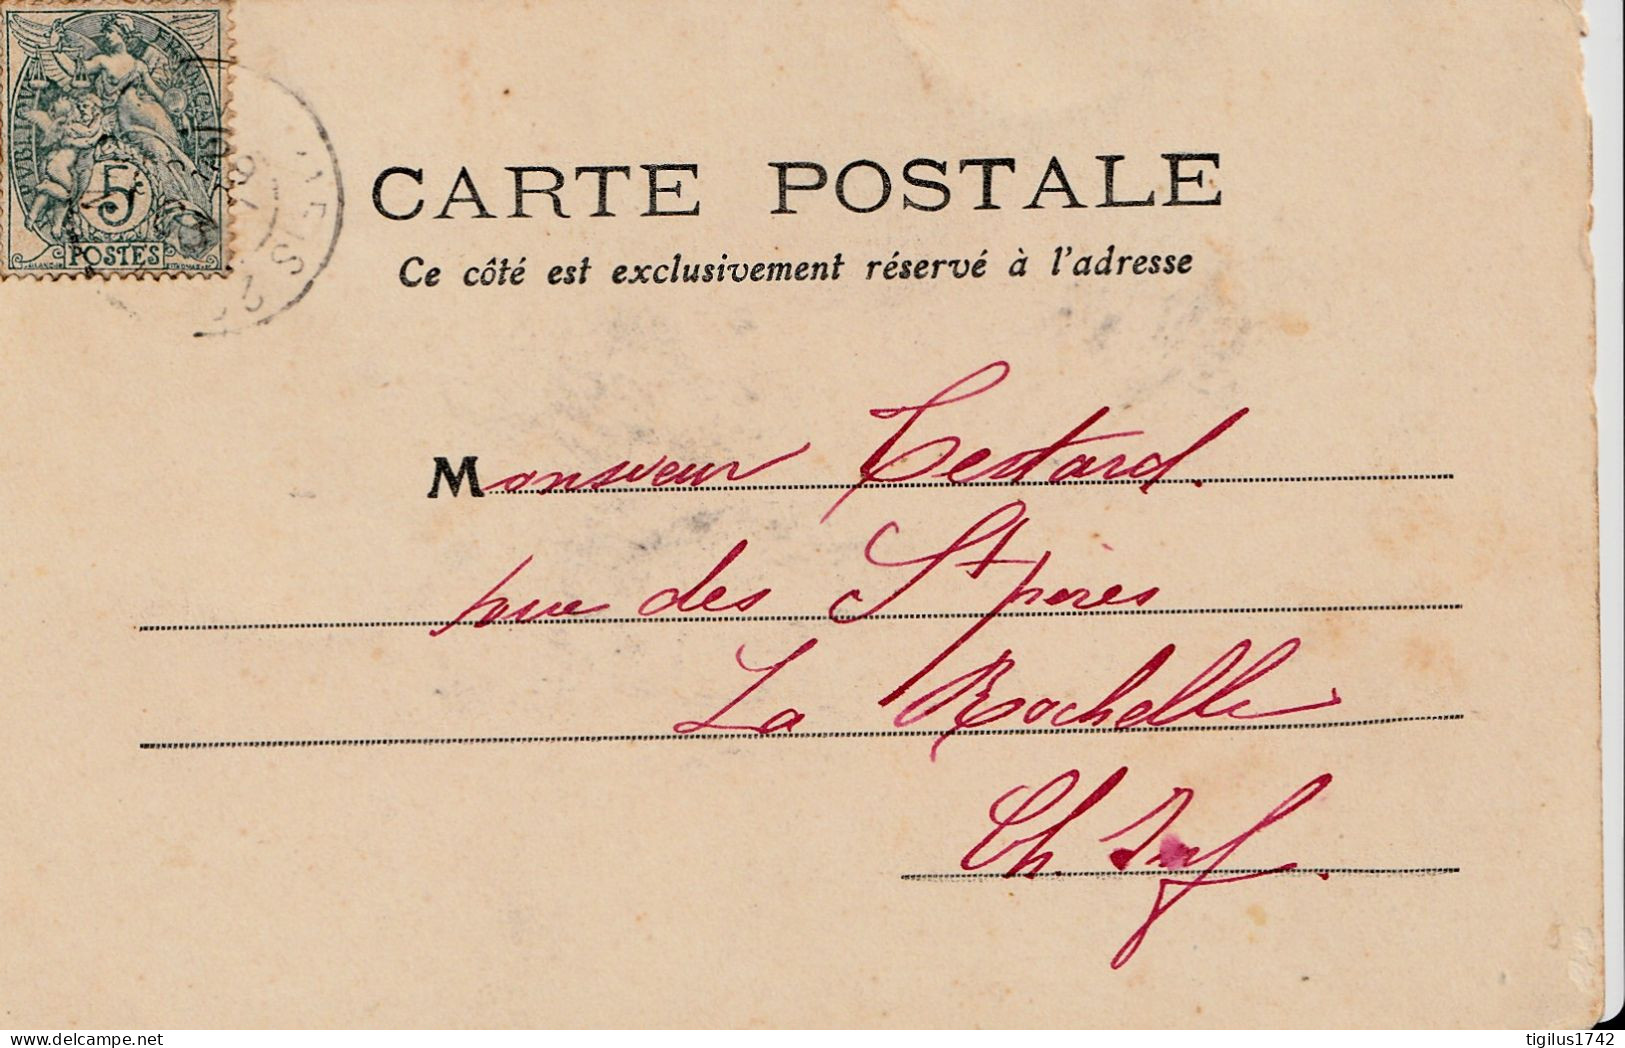 RÉPUBLIQUE FRANÇAISE
5c
POSTES
CARTE POSTALE
Ce côté est exclusivement réservé à l'adresse
Monsieur Testard.
rue des St pères
La Rochelle
Ch. Inf.
delcampe.net
tigilus1742